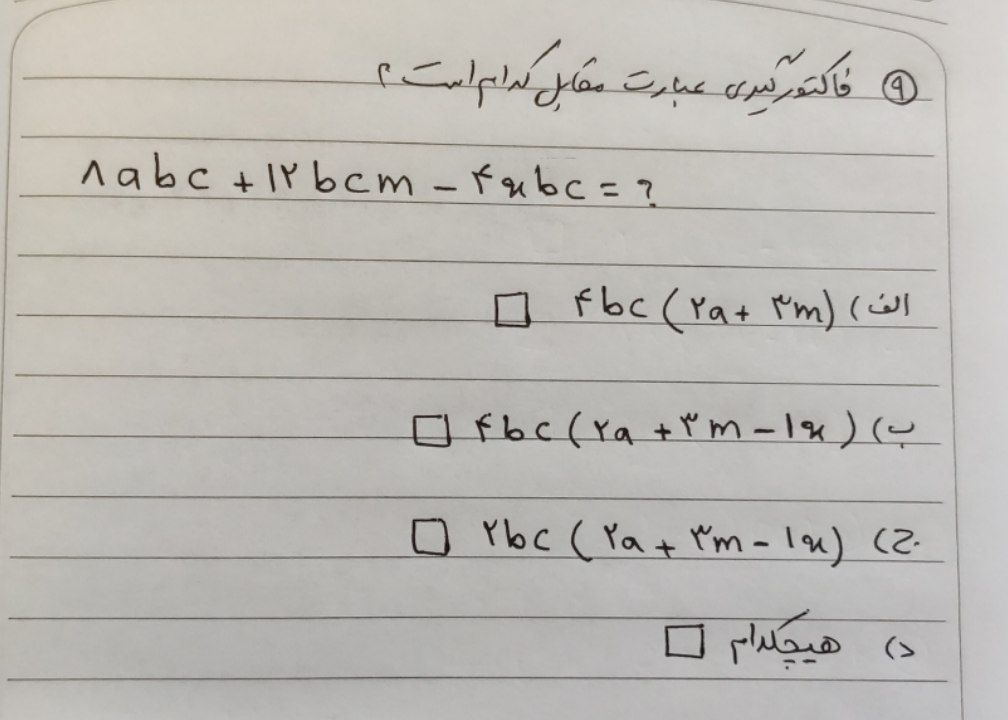 ۹ فاکتورگیری عبارت مقابل کدام است؟
۸abc + ۱۲bcm - ۴xbc = ?
الف) ۴bc (۲a + ۳m) □
ب) ۴bc (۲a + ۳m - ۱x) □
ج) ۲bc (۲a + ۳m - ۱x) □
د) هیچکدام □